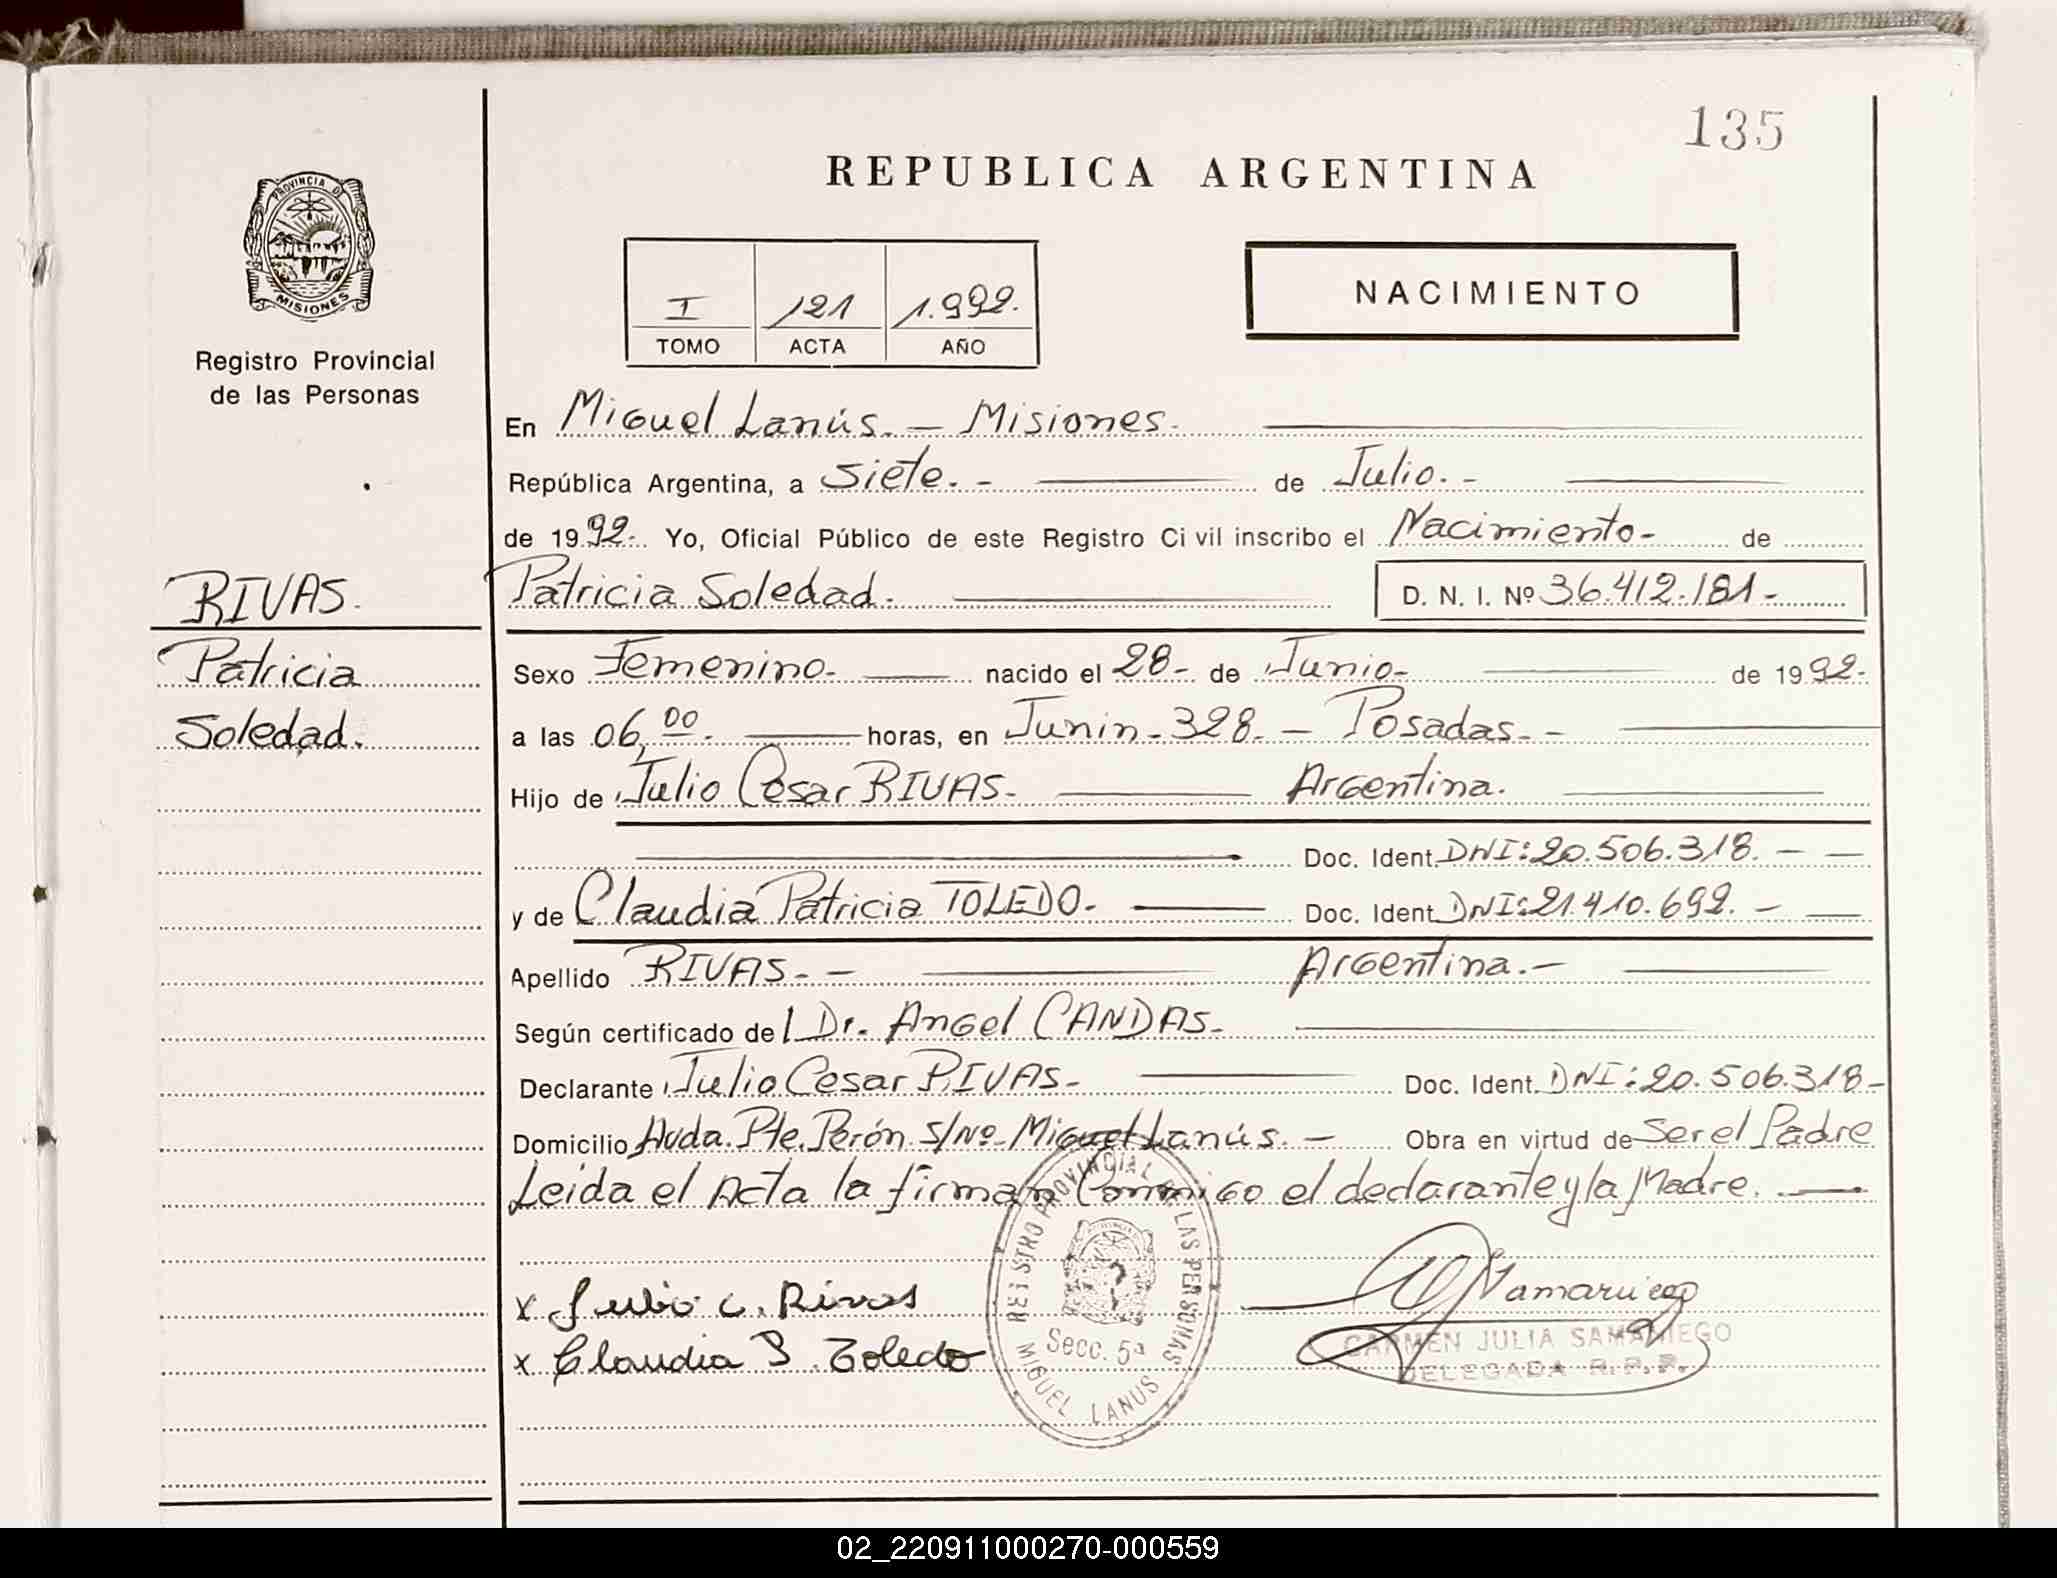 135
REPUBLICA ARGENTINA
PROVINCIA DE
MISIONES
Registro Provincial
de las Personas
I 121 1.992.
TOMO ACTA AÑO
NACIMIENTO
En Miguel Lanús. — Misiones.
República Argentina, a Siete. - de Julio. -
de 1992.- Yo, Oficial Público de este Registro Civil inscribo el Nacimiento- de
RIVAS.
Patricia Soledad. D. N. I. Nº 36.412.181-
Patricia
Soledad.
Sexo Femenino.- nacido el 28- de Junio- de 1992.-
a las 06,00. horas, en Junin - 328. - Posadas. -
Hijo de Julio Cesar RIVAS. Argentina.
Doc. Ident. DNI: 20.506.318. - -
y de Claudia Patricia TOLEDO. Doc. Ident. DNI: 21.410.692. - -
Apellido RIVAS. - Argentina. -
Según certificado del Dr. Angel CANDAS.
Declarante Julio Cesar RIVAS. Doc. Ident. DNI: 20.506.318-
Domicilio Avda. Pte. Perón S/Nº- Miguel Lanús. - Obra en virtud de Ser el Padre
Leida el Acta la firman Conmigo el declarante y la Madre.
x Julio C. Rivas
x Claudia P. Toledo
REGISTRO PROVINCIAL DE LAS PERSONAS
Secc. 5ª
MIGUEL LANUS
CARMEN JULIA SAMANIEGO
DELEGADA R.P.P.
02_220911000270-000559